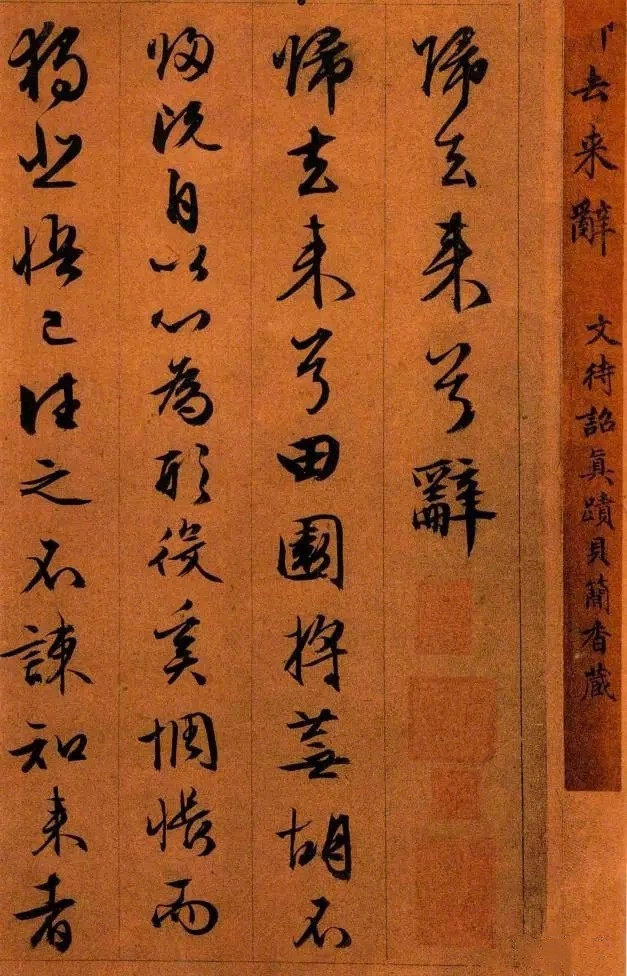 去来辭 文待詔眞蹟貝簡香藏
歸去来兮辭
歸去来兮田園將蕪胡不
歸既自以心為形役奚惆悵而
獨悲悟已往之不諫知来者